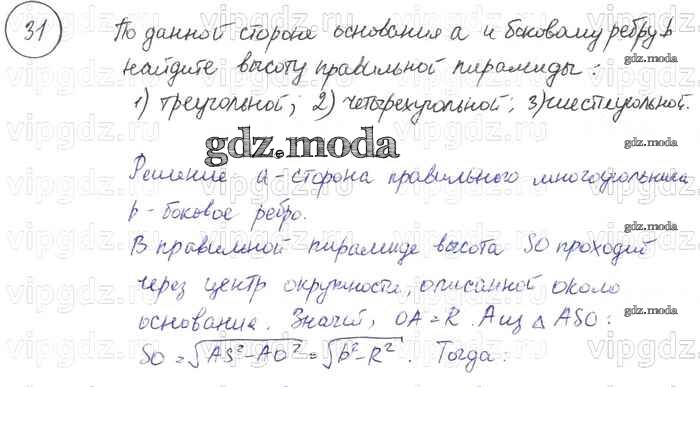 31 По данной стороне основания a и боковому ребру b
найдите высоту правильной пирамиды:
1) треугольной; 2) четырехугольной; 3) шестиугольной.
gdz.moda
Решение a - сторона правильного многоугольника
b - боковое ребро.
В правильной пирамиде высота SO проходит
через центр окружности, описанной около
основания. Значит, OA = R. А из △ ASO:
SO = √AS² - AO² = √b² - R². Тогда: